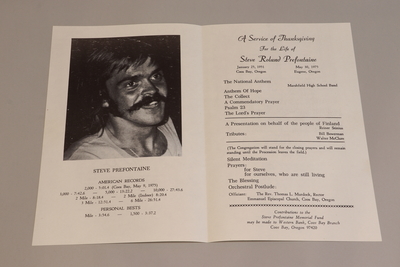 STEVE PREFONTAINE
AMERICAN RECORDS
2,000 - 5:01.4 (Coos Bay, May 9, 1975)
3,000 - 7:42.6 — 5,000 - 13:22.2 — 10,000 - 27:43.6
2 Mile - 8:18.4 — 2 Mile (Indoor) 8:20.4
3 Mile - 12:51.4 — 6 Mile - 26:51.4
PERSONAL BESTS
Mile - 3:54.6 — 1,500 - 3:37.2
A Service of Thanksgiving
For the Life of
Steve Roland Prefontaine
January 25, 1951 May 30, 1975
Coos Bay, Oregon Eugene, Oregon
The National Anthem Marshfield High School Band
Anthem Of Hope
The Collect
A Commendatory Prayer
Psalm 23
The Lord's Prayer
A Presentation on behalf of the people of Finland
Tributes: Bill Bowerman
Walter McClure
(The Congregation will stand for the closing prayers and will remain
standing until the Procession leaves the field.)
Silent Meditation
Prayers:
for Steve
for ourselves, who are still living
The Blessing
Orchestral Postlude
Officiant: The Rev. Thomas L. Murdock, Rector
Emmanuel Episcopal Church, Coos Bay, Oregon
Contributions to the
Steve Prefontaine Memorial Fund
may be made to Western Bank, Coos Bay Branch
Coos Bay, Oregon 97420